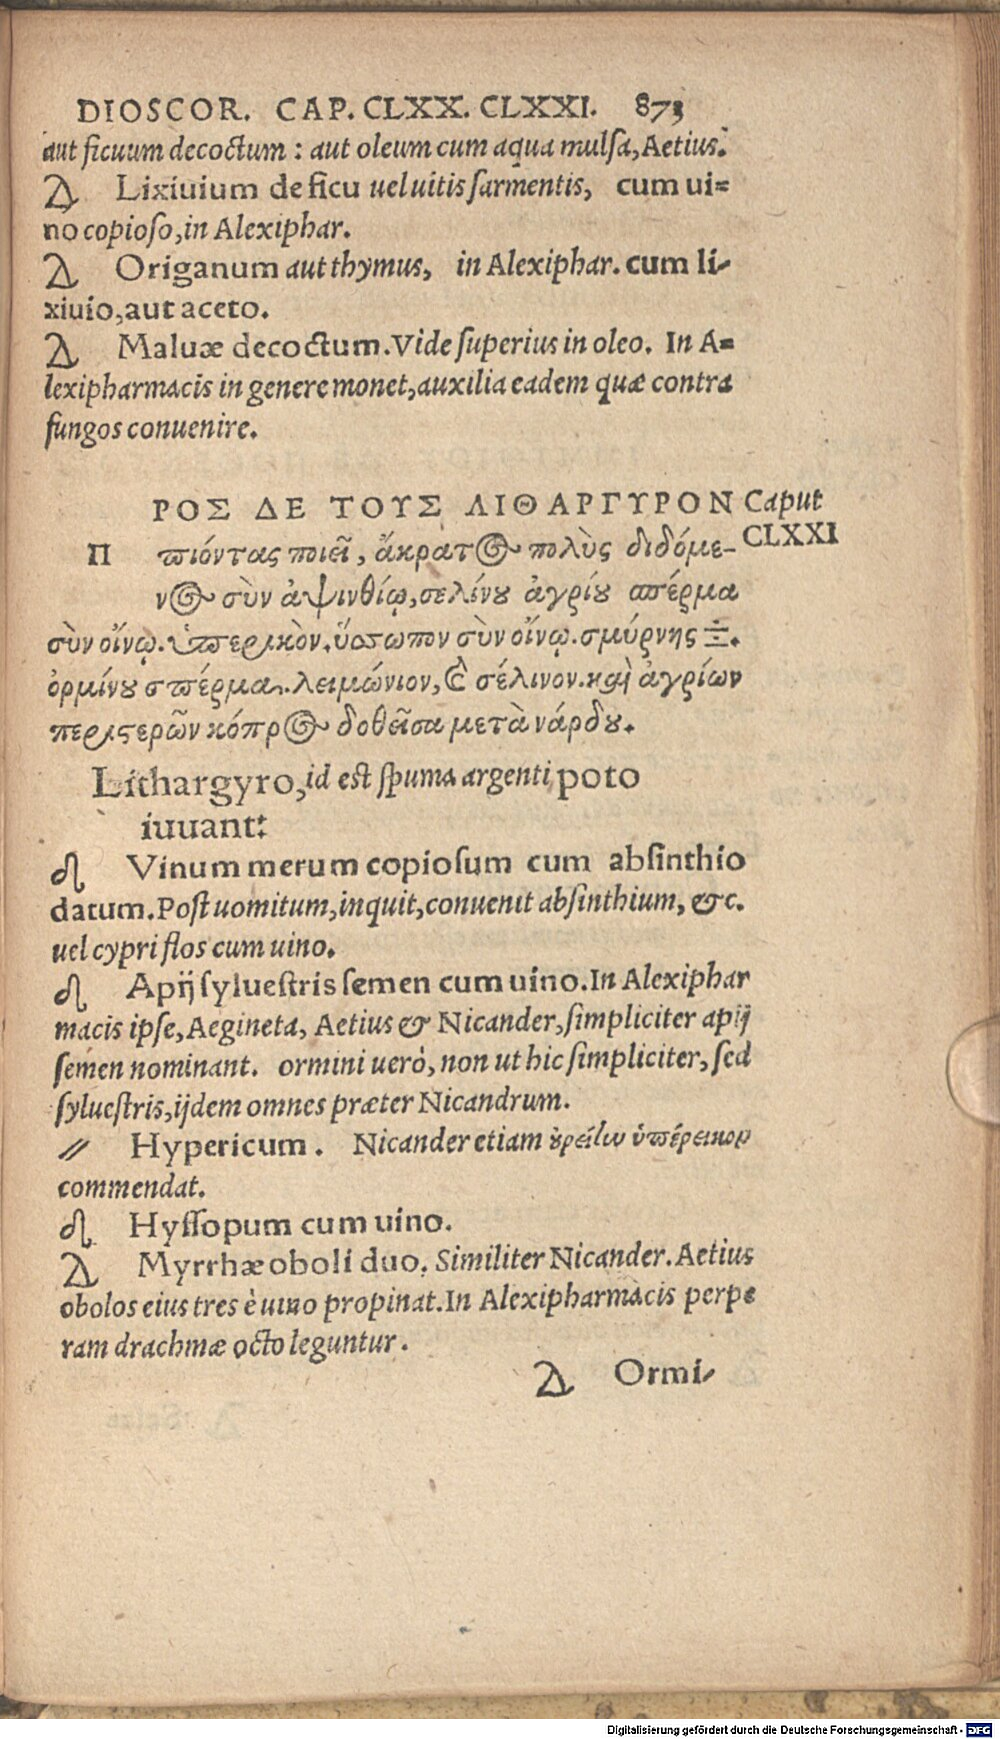 DIOSCOR. CAP. CLXX. CLXXI. 873
aut ficuum decoctum : aut oleum cum aqua mulsa, Aetius.
Lixiuium de ficu uel uitis sarmentis, cum ui=
no copioso, in Alexiphar.
Origanum aut thymus, in Alexiphar. cum li-
xiuio, aut aceto.
Maluæ decoctum. Vide superius in oleo. In A=
lexipharmacis in genere monet, auxilia eadem quæ contra
fungos conuenire.
ΡΟΣ ΔΕ ΤΟΥΣ ΛΙΘΑΡΓΥΡΟΝ Caput
Π πιόντας ποιεῖ, ἄκρατος πολὺς διδόμε- CLXXI
νος σὺν ἀψινθίῳ, σελίνου ἀγρίου σπέρμα
σὺν οἴνῳ. ὑπερικὸν. ὕσσωπον σὺν οἴνῳ. σμύρνης
ὁρμίνου σπέρμα. λειμώνιον, σέλινον. καὶ ἀγρίων
περιστερῶν κόπρος δοθεῖσα μετὰ νάρδου.
Lithargyro, id est spuma argenti poto
iuuant:
Vinum merum copiosum cum absinthio
datum. Post uomitum, inquit, conuenit absinthium, &c.
uel cypri flos cum uino.
Apij syluestris semen cum uino. In Alexiphar
macis ipse, Aegineta, Aetius & Nicander, simpliciter apij
semen nominant. ormini uerò, non ut hic simpliciter, sed
syluestris, ijdem omnes præter Nicandrum.
Hypericum. Nicander etiam ὑπέρεικον
commendat.
Hyssopum cum uino.
Myrrhæ oboli duo. Similiter Nicander. Aetius
obolos eius tres è uino propinat. In Alexipharmacis perpe
ram drachmæ octo leguntur.
Ormi-
Digitalisierung gefördert durch die Deutsche Forschungsgemeinschaft - DFG